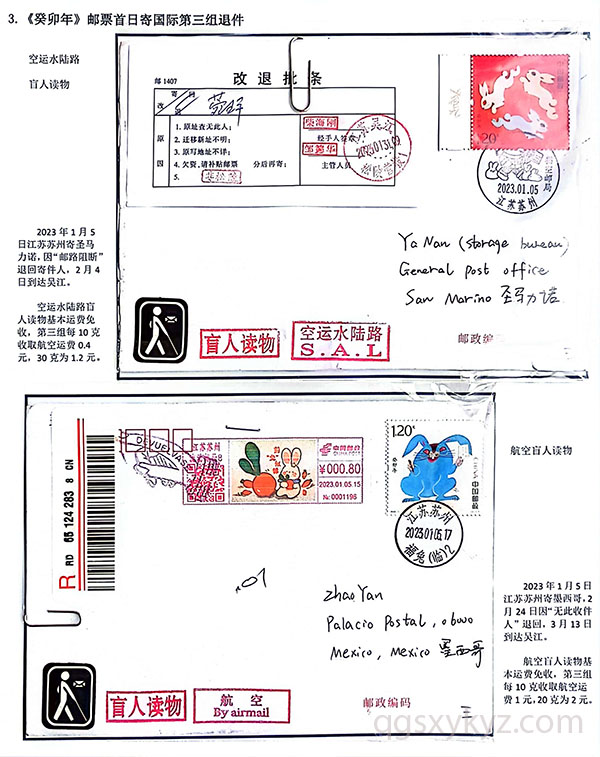 3.《癸卯年》邮票首日寄国际第三组退件
空运水陆路
盲人读物
邮 1407
改退批条
寄
改
原
因
1. 原址查无此人；
2. 迁移新址不明；
3. 原写地址不详；
4. 欠资，请补贴邮票 分后再寄；
5.
经手人签章
主管人员
20分
2023.01.05
江苏苏州
2023年1月5
日江苏苏州寄圣马
力诺，因“邮路阻断”
退回寄件人，2月4
日到达吴江。
空运水陆路盲
人读物基本运费免
收，第三组每10克
收取航空运费0.4
元，30克为1.2元。
Ya Nan (storage bureau)
General post office
San Marino 圣马力诺
邮政编
盲人读物
空运水陆路
S.A.L
航空盲人读物
R
RD 65 124 283 8 CN
江苏苏州
中国邮政
CHINA POST
¥000.80
2023.01.05.15
№:0001196
1.20元
中国邮政
江苏苏州
2023.01.05.17
福兔(临)2
Zhao Yan
Palacio Postal, 06000
Mexico, Mexico 墨西哥
盲人读物
航 空
By airmail
邮政编码
2023年1月5日
江苏苏州寄墨西哥，2
月24日因“无此收件
人”退回，3月13日
到达吴江。
航空盲人读物基
本运费免收，第三组
每10克收取航空运
费1元，20克为2元。
qgsxykyz.com